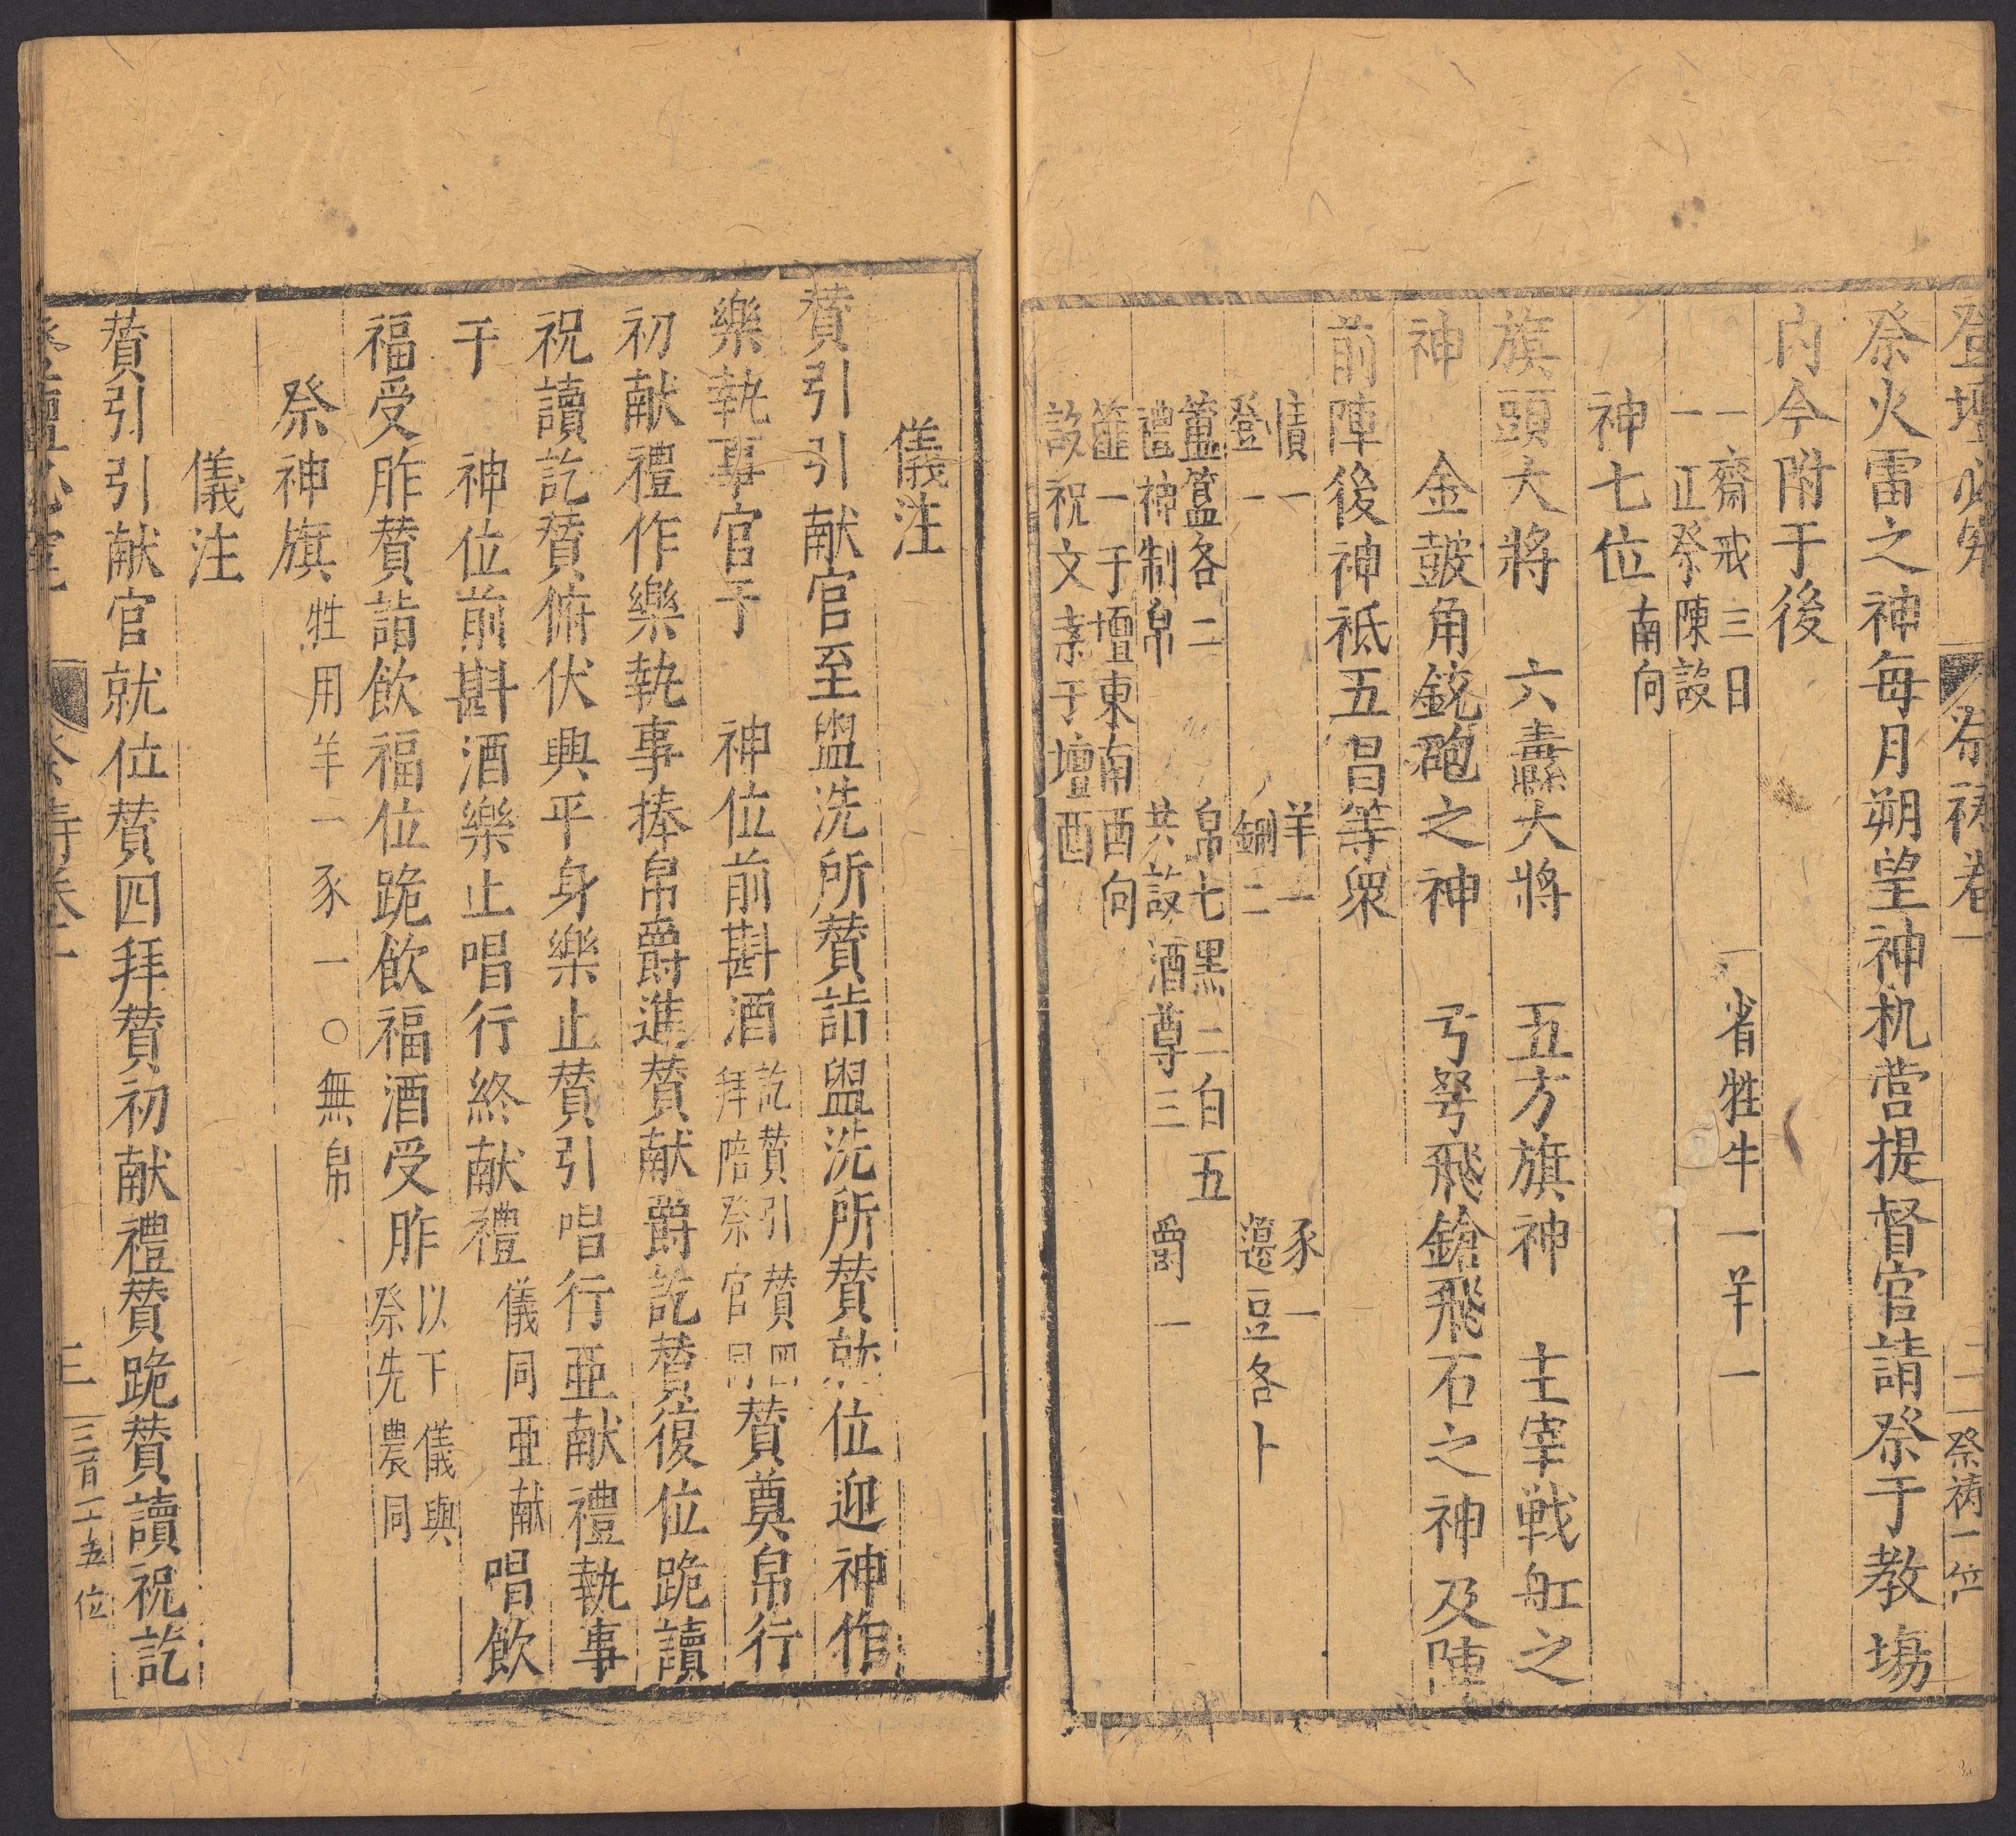 登壇必究　祭禱卷一　二　祭禱一位
祭火雷之神每月朔望神机营提督官請祭于教塲
内今附于後
一齋戒三日　一省牲牛一羊一
一正祭陳設
神七位南向
旗頭大將　六纛大將　五方旗神　主宰戦舡之
神　金皷角銃砲之神　弓弩飛鎗飛石之神及陣
前陣後神祗五昌等衆
犢一　羊一　豕一
登一　鉶二　籩豆各十
簠簋各二　帛七黑二白五
禮神制帛　共設酒尊三　爵一
篚一于壇東南酉向
設祝文案于壇酉
儀注
賛引引献官至盥洗所賛詣盥洗所賛就位迎神作
樂執事官于　神位前斟酒訖賛引賛四拜陪祭官同賛奠帛行
初献禮作樂執事捧帛爵進賛献爵訖賛復位跪讀
祝讀訖賛俯伏興平身樂止賛引唱行亜献禮執事
于　神位前斟酒樂止唱行終献禮儀同亜献唱飲
福受胙賛詣飲福位跪飲福酒受胙以下儀與祭先農同
祭神旗牲用羊一豕一○無帛
儀注
賛引引献官就位賛四拜賛初献禮賛跪賛讀祝訖
三　三百二五位